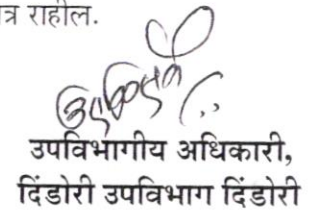 त्र राहील.
उपविभागीय अधिकारी,
दिंडोरी उपविभाग दिंडोरी